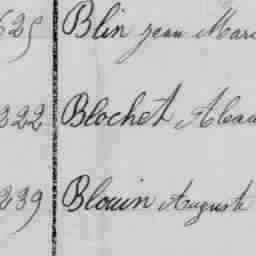 625 Blin Jean Mar
322 Blochet
239 Blouin Auguste